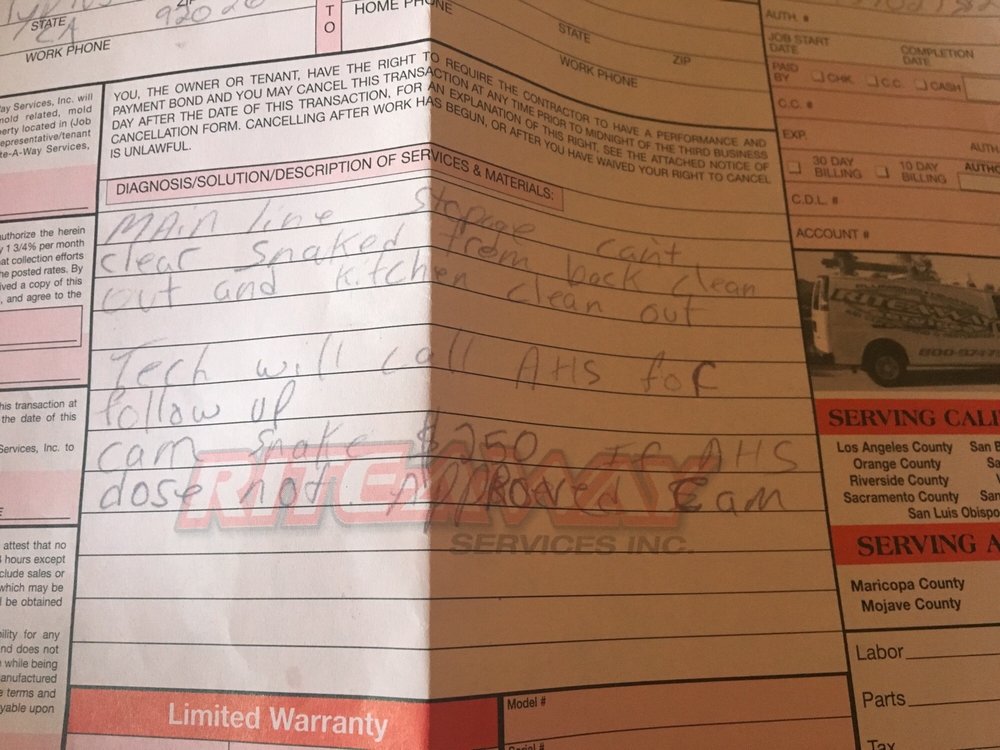 STATE
CA 92020
WORK PHONE
T
O
HOME PHONE
STATE
ZIP
WORK PHONE
AUTH. #
JOB START DATE
COMPLETION DATE
PAID BY CHK. C.C. CASH
C.C. #
EXP.
AUTH
30 DAY BILLING 10 DAY BILLING
C.D.L. #
ACCOUNT #
YOU, THE OWNER OR TENANT, HAVE THE RIGHT TO REQUIRE THE CONTRACTOR TO HAVE A PERFORMANCE AND
PAYMENT BOND AND YOU MAY CANCEL THIS TRANSACTION AT ANY TIME PRIOR TO MIDNIGHT OF THE THIRD BUSINESS
DAY AFTER THE DATE OF THIS TRANSACTION. FOR AN EXPLANATION OF THIS RIGHT, SEE THE ATTACHED NOTICE OF
CANCELLATION FORM. CANCELLING AFTER WORK HAS BEGUN, OR AFTER YOU HAVE WAIVED YOUR RIGHT TO CANCEL
IS UNLAWFUL.
DIAGNOSIS/SOLUTION/DESCRIPTION OF SERVICES & MATERIALS:
MAin line stopage can't
clear snaked from back clean
out and kitchen clean out
Tech will call AHS for
follow up
cam snake $250 If AHS
dose not Approved cam
RITE-A-WAY
SERVICES INC.
Way Services, Inc. will
mold related, mold
erty located in (Job
epresentative/tenant
te-A-Way Services,
uthorize the herein
y 1 3/4% per month
at collection efforts
he posted rates. By
ived a copy of this
, and agree to the
his transaction at
the date of this
Services, Inc. to
attest that no
hours except
clude sales or
which may be
l be obtained
bility for any
nd does not
while being
anufactured
e terms and
yable upon
800-
SERVING CALI
Los Angeles County San B
Orange County Sa
Riverside County
Sacramento County San
San Luis Obispo
SERVING A
Maricopa County
Mojave County
Labor
Parts
Tax
Limited Warranty
Model #
Serial #